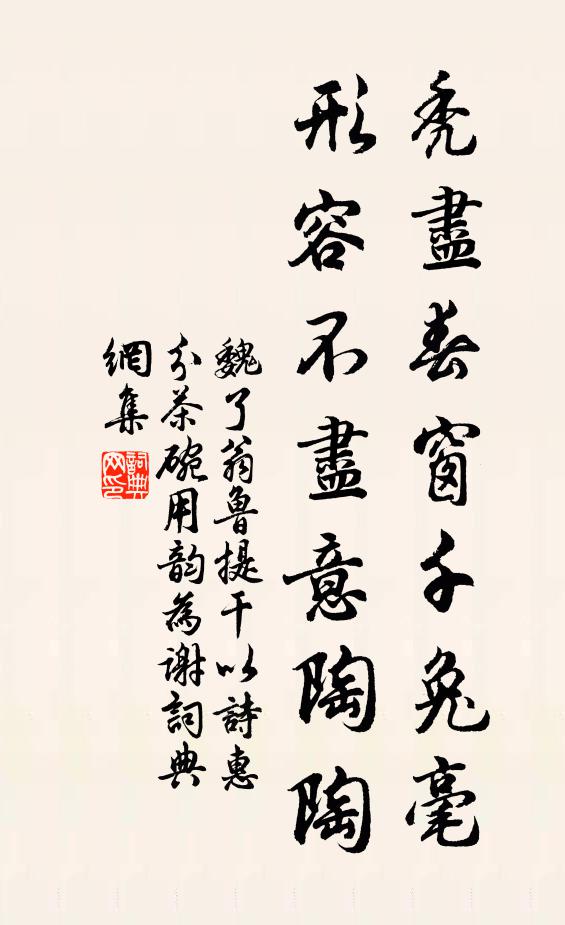 禿盡春窗千兔毫
形容不盡意陶陶
魏了翁魯提干以詩惠
分茶碗用韵為謝詞典
網集
詞典
网印